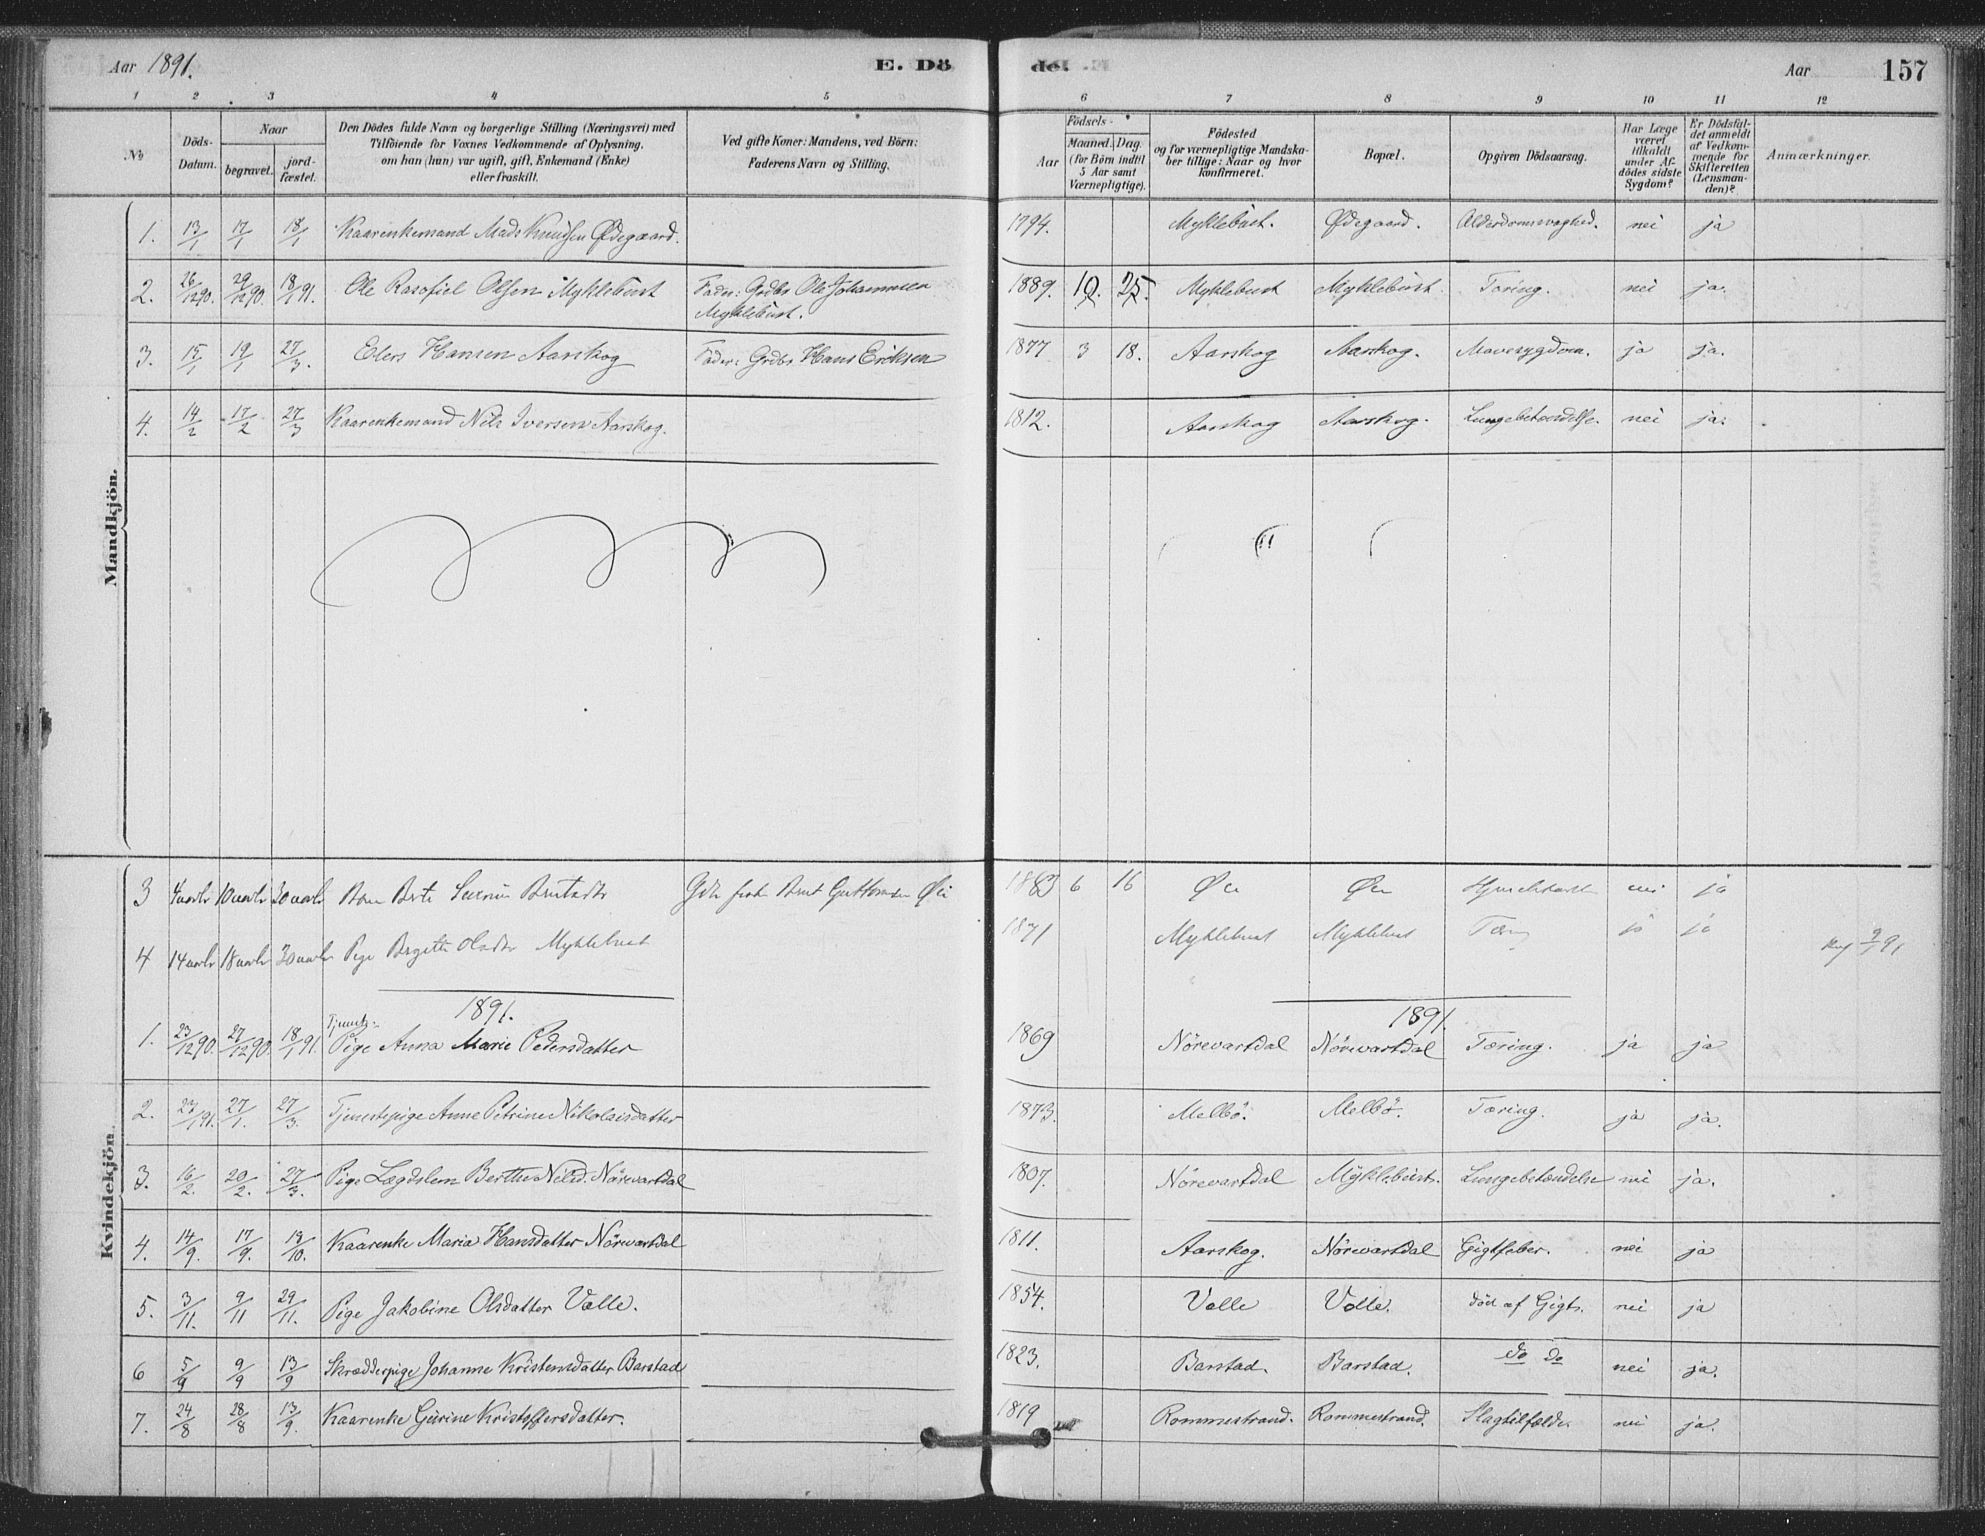 Aar 1891. E. Dö
de. Aar 157
1 2 3 4 5
6 7 8 9 10 11 12
No
Döds-Datum.
Naar
begravet.
jord-fæstet.
Den Dödes fulde Navn og borgerlige Stilling (Næringsvei) med
Tilföiende for Voxnes Vedkommende af Oplysning.
om han (hun) var ugift, gift, Enkemand (Enke)
eller fraskilt.
Ved gifte Koner: Mandens, ved Börn:
Faderens Navn og Stilling.
Födsels-
Aar
Maaned. Dag.
(for Börn indtil
5 Aar samt
Værnepligtige).
Födested
og for værnepligtige Mandska-
ber tillige: Naar og hvor
konfirmeret.
Bopæl.
Opgiven Dödsaarsag.
Har Læge
været
tilkaldt
under Af-
dödes sidste
Sygdom?
Er Dödsfal-
det anmeldt
af Vedkom-
mende for
Skifteretten
(Lensman-
den)?
Anmærkninger.
Mandkjön.
1. 13/1 17/1 18/1 Kaarenkemand Mads Knudsen Ødegaard. 1794. Myklebust. Ødegaard. Alderdomssvaghed. nei ja
2. 26/12 90. 29/12 90. 18/1 91. Ole Rasofiel Olsen Myklebust Fader: Grdbr Ole Johannesen 1889. 10. 25. Myklebust Myklebust. Tæring. nei ja.
Myklebust.
3. 15/1 19/1 27/3. Elers Hansen Aarskog Fader: Grdbr Hans Eriksen 1877 3 18. Aarskog Aarskog. Mavesygdom. ja ja.
4. 14/2 17/2 27/3 Kaarenkemand Nils Iversen Aarskog. 1812. Aarskog Aarskog. Lungebetændelse. nei ja.
Kvindekjön.
3 1883 6 16 Øie Øie ja
4 Pige Myklebust 1871 Myklebust Myklebust Tæring ja ja
1891. 1891.
Tjeneste-
1. 23/12 90. 27/12 90. 18/1 91. Pige Anna Marie Pedersdatter 1869 Nörevartdal Nörevartdal Tæring. ja ja
2. 23/1 91. 27/1. 27/3. Tjenestepige Anne Petrine Nikolaisdatter 1873. Melbö. Melbö. Tæring. ja ja.
3. 16/2. 20/2. 27/3. Pige Lægdslem Berthe Nilsd. Nörevartdal 1807. Nörevartdal Myklebust. Lungebetændelse nei ja.
4. 14/9. 17/9. 19/10. Kaarenke Maria Hansdatter Nörevartdal 1811. Aarskog. Nörevartdal Gigtfeber. nei ja
5. 3/11. 9/11 29/11. Pige Jakobine Olsdatter Valle. 1854. Valle Valle. död af Gigt. nei ja
6 5/9 9/9 13/9 Skrædderpige Johanne Kristensdatter Barstad 1823. Barstad. Barstad. do do nei ja.
7. 24/8 28/8 13/9. Kaarenke Gurine Kristoffersdatter. 1819 Rommestrand. Rommestrand. Slagtilfælde. nei ja.